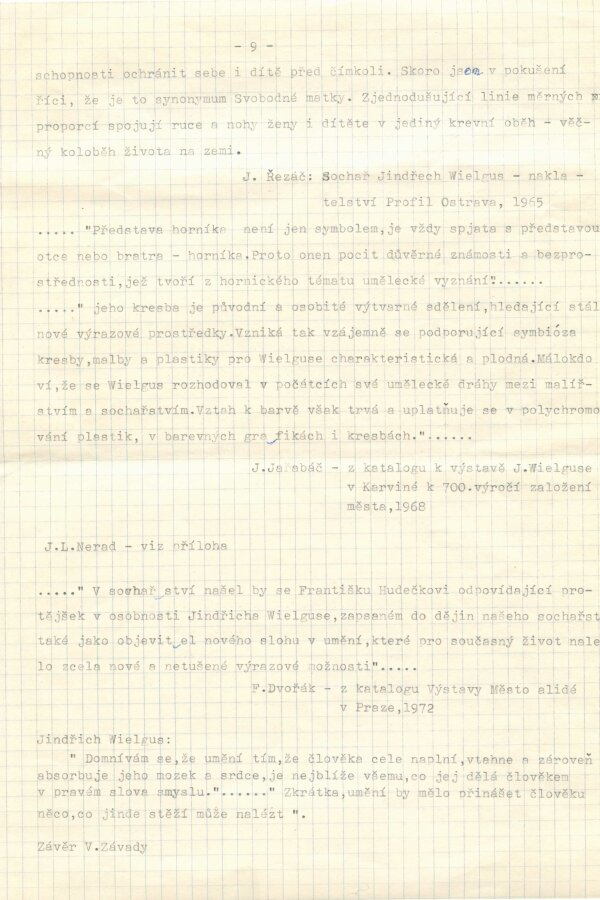 - 9 -
schopnosti ochránit sebe i dítě před čímkoli. Skoro jsem v pokušení
říci, že je to synonymum Svobodné matky. Zjednodušující linie měrných
proporcí spojují ruce a nohy ženy i dítěte v jediný krevní oběh - věč-
ný koloběh života na zemi.
J. Řezáč: Sochař Jindřech Wielgus - nakla -
telství Profil Ostrava, 1965
..... "Představa horníka není jen symbolem,je vždy spjata s představou
otce nebo bratra - horníka.Proto onen pocit důvěrné známosti a bezpro-
střednosti,jež tvoří z hornického tématu umělecké vyznání"......
....." jeho kresba je původní a osobité výtvarné sdělení,hledající stál
nové výrazové prostředky.Vzniká tak vzájemně se podporující symbióza
kresby,malby a plastiky pro Wielguse charakteristická a plodná.Málokdo
ví,že se Wielgus rozhodoval v počátcích své umělecké dráhy mezi malíř-
stvím a sochařstvím.Vztah k barvě však trvá a uplatňuje se v polychromo
vání plastik, v barevných grafikách i kresbách."......
J.Jarabáč - z katalogu k výstavě J.Wielguse
v Karviné k 700.výročí založení
města,1968
J.L.Nerad - viz příloha
....." V sochařství našel by se Františku Hudečkovi odpovídající pro-
tějšek v osobnosti Jindřicha Wielguse,zapsaném do dějin našeho sochařst
také jako objevitel nového slohu v umění,které pro současný život nale
lo zcela nové a netušené výrazové možnosti".....
F.Dvořák - z katalogu Výstavy Město alidé
v Praze,1972
Jindřich Wielgus:
" Domnívám se,že umění tím,že člověka cele naplní,vtahne a zároveň
absorbuje jeho mozek a srdce,je nejblíže všemu,co jej dělá člověkem
v pravám slova smyslu."......" Zkrátka,umění by mělo přinášet člověku
něco,co jinde stěží může nalézt ".
Závěr V.Závady